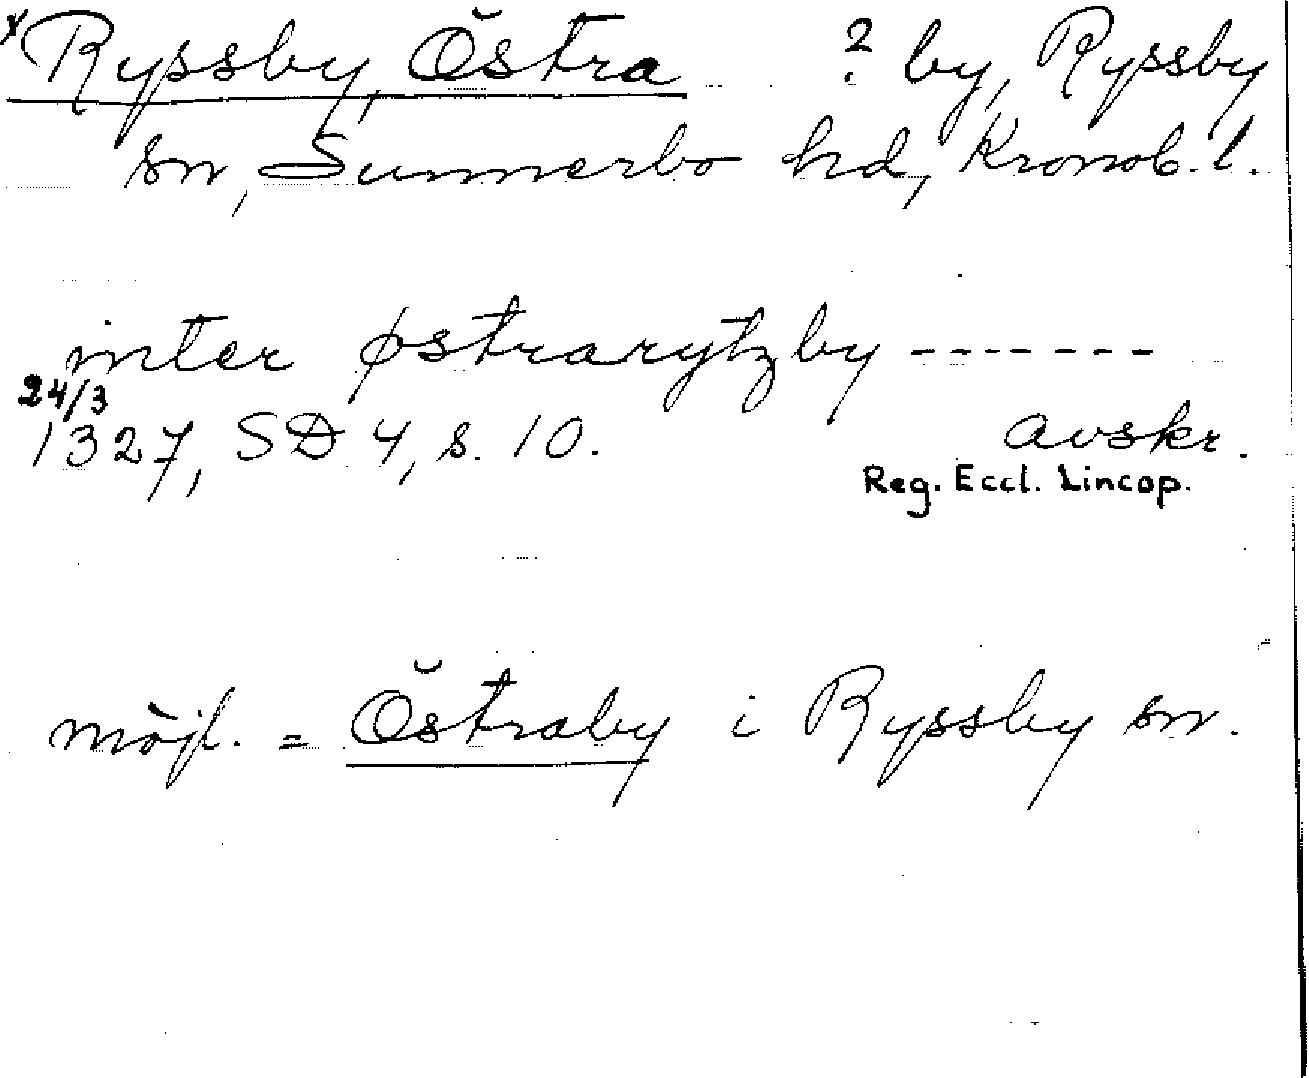 x Ryssby, Östra ? by, Ryssby
sn, Sunnerbo hd, Kronob. l.
inter østrarytzby -------
24/3
1327, SD 4, s. 10. avskr.
Reg. Eccl. Lincop.
möjl. = Östraby i Ryssby sn.